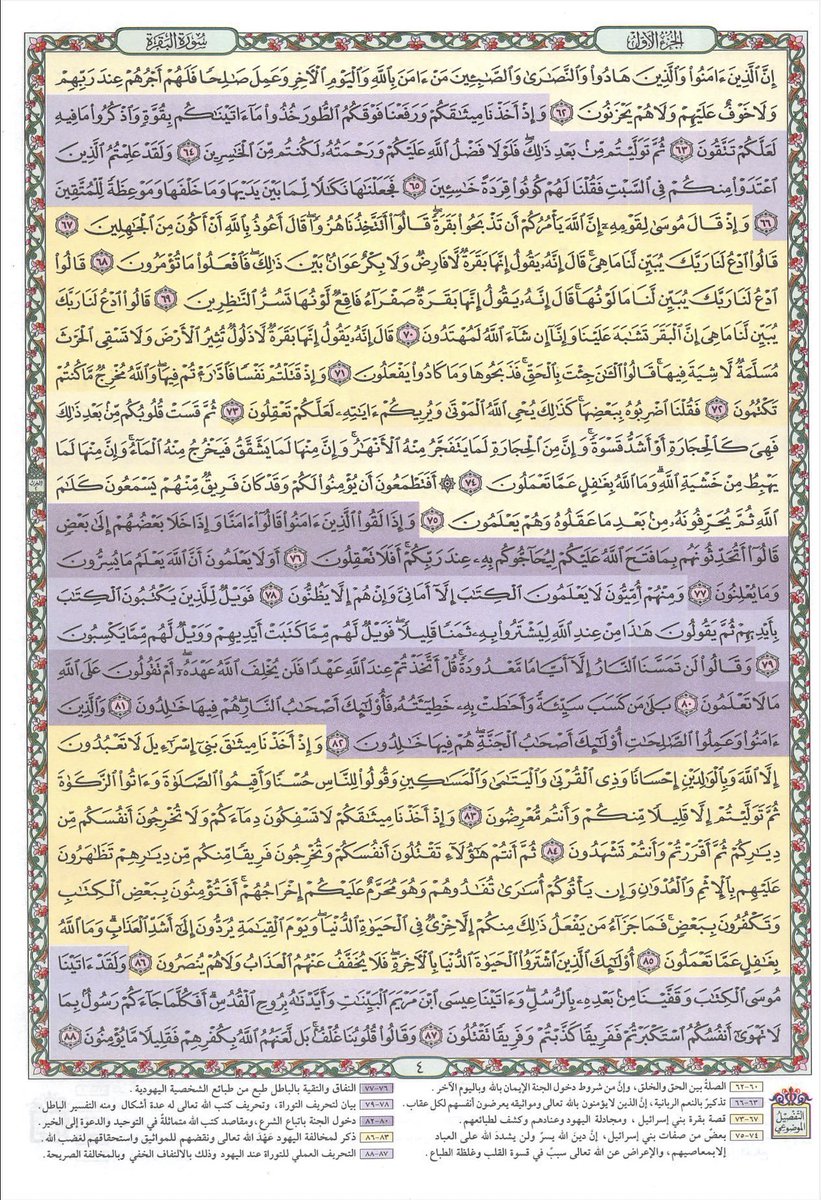 الجزء الأول
سورة البقرة
إِنَّ الَّذِينَ ءَامَنُوا وَالَّذِينَ هَادُوا وَالنَّصَارَىٰ وَالصَّابِئِينَ مَنْ ءَامَنَ بِاللَّهِ وَالْيَوْمِ الْآخِرِ وَعَمِلَ صَالِحًا فَلَهُمْ أَجْرُهُمْ عِندَ رَبِّهِمْ
وَلَا خَوْفٌ عَلَيْهِمْ وَلَا هُمْ يَحْزَنُونَ ٦٢ وَإِذْ أَخَذْنَا مِيثَاقَكُمْ وَرَفَعْنَا فَوْقَكُمُ الطُّورَ خُذُوا مَا ءَاتَيْنَاكُم بِقُوَّةٍ وَاذْكُرُوا مَا فِيهِ
لَعَلَّكُمْ تَتَّقُونَ ٦٣ ثُمَّ تَوَلَّيْتُم مِّنْ بَعْدِ ذَٰلِكَ فَلَوْلَا فَضْلُ اللَّهِ عَلَيْكُمْ وَرَحْمَتُهُ لَكُنتُم مِّنَ الْخَاسِرِينَ ٦٤ وَلَقَدْ عَلِمْتُمُ الَّذِينَ
اعْتَدَوْا مِنكُمْ فِي السَّبْتِ فَقُلْنَا لَهُمْ كُونُوا قِرَدَةً خَاسِئِينَ ٦٥ فَجَعَلْنَاهَا نَكَالًا لِّمَا بَيْنَ يَدَيْهَا وَمَا خَلْفَهَا وَمَوْعِظَةً لِّلْمُتَّقِينَ
٦٦ وَإِذْ قَالَ مُوسَىٰ لِقَوْمِهِ إِنَّ اللَّهَ يَأْمُرُكُمْ أَن تَذْبَحُوا بَقَرَةً قَالُوا أَتَتَّخِذُنَا هُزُوًا قَالَ أَعُوذُ بِاللَّهِ أَنْ أَكُونَ مِنَ الْجَاهِلِينَ ٦٧
قَالُوا ادْعُ لَنَا رَبَّكَ يُبَيِّن لَّنَا مَا هِيَ قَالَ إِنَّهُ يَقُولُ إِنَّهَا بَقَرَةٌ لَّا فَارِضٌ وَلَا بِكْرٌ عَوَانٌ بَيْنَ ذَٰلِكَ فَافْعَلُوا مَا تُؤْمَرُونَ ٦٨ قَالُوا
ادْعُ لَنَا رَبَّكَ يُبَيِّن لَّنَا مَا لَوْنُهَا قَالَ إِنَّهُ يَقُولُ إِنَّهَا بَقَرَةٌ صَفْرَاءُ فَاقِعٌ لَّوْنُهَا تَسُرُّ النَّاظِرِينَ ٦٩ قَالُوا ادْعُ لَنَا رَبَّكَ
يُبَيِّن لَّنَا مَا هِيَ إِنَّ الْبَقَرَ تَشَابَهَ عَلَيْنَا وَإِنَّا إِن شَاءَ اللَّهُ لَمُهْتَدُونَ ٧٠ قَالَ إِنَّهُ يَقُولُ إِنَّهَا بَقَرَةٌ لَّا ذَلُولٌ تُثِيرُ الْأَرْضَ وَلَا تَسْقِي الْحَرْثَ
مُسَلَّمَةٌ لَّا شِيَةَ فِيهَا قَالُوا الْآنَ جِئْتَ بِالْحَقِّ فَذَبَحُوهَا وَمَا كَادُوا يَفْعَلُونَ ٧١ وَإِذْ قَتَلْتُمْ نَفْسًا فَادَّارَأْتُمْ فِيهَا وَاللَّهُ مُخْرِجٌ مَّا كُنتُمْ
تَكْتُمُونَ ٧٢ فَقُلْنَا اضْرِبُوهُ بِبَعْضِهَا كَذَٰلِكَ يُحْيِي اللَّهُ الْمَوْتَىٰ وَيُرِيكُمْ ءَايَاتِهِ لَعَلَّكُمْ تَعْقِلُونَ ٧٣ ثُمَّ قَسَتْ قُلُوبُكُم مِّنْ بَعْدِ ذَٰلِكَ
فَهِيَ كَالْحِجَارَةِ أَوْ أَشَدُّ قَسْوَةً وَإِنَّ مِنَ الْحِجَارَةِ لَمَا يَتَفَجَّرُ مِنْهُ الْأَنْهَارُ وَإِنَّ مِنْهَا لَمَا يَشَّقَّقُ فَيَخْرُجُ مِنْهُ الْمَاءُ وَإِنَّ مِنْهَا لَمَا
يَهْبِطُ مِنْ خَشْيَةِ اللَّهِ وَمَا اللَّهُ بِغَافِلٍ عَمَّا تَعْمَلُونَ ٧٤ ۞ أَفَتَطْمَعُونَ أَن يُؤْمِنُوا لَكُمْ وَقَدْ كَانَ فَرِيقٌ مِّنْهُمْ يَسْمَعُونَ كَلَامَ
اللَّهِ ثُمَّ يُحَرِّفُونَهُ مِنْ بَعْدِ مَا عَقَلُوهُ وَهُمْ يَعْلَمُونَ ٧٥ وَإِذَا لَقُوا الَّذِينَ ءَامَنُوا قَالُوا ءَامَنَّا وَإِذَا خَلَا بَعْضُهُمْ إِلَىٰ بَعْضٍ
قَالُوا أَتُحَدِّثُونَهُم بِمَا فَتَحَ اللَّهُ عَلَيْكُمْ لِيُحَاجُّوكُم بِهِ عِندَ رَبِّكُمْ أَفَلَا تَعْقِلُونَ ٧٦ أَوَلَا يَعْلَمُونَ أَنَّ اللَّهَ يَعْلَمُ مَا يُسِرُّونَ
وَمَا يُعْلِنُونَ ٧٧ وَمِنْهُمْ أُمِّيُّونَ لَا يَعْلَمُونَ الْكِتَابَ إِلَّا أَمَانِيَّ وَإِنْ هُمْ إِلَّا يَظُنُّونَ ٧٨ فَوَيْلٌ لِّلَّذِينَ يَكْتُبُونَ الْكِتَابَ
بِأَيْدِيهِمْ ثُمَّ يَقُولُونَ هَٰذَا مِنْ عِندِ اللَّهِ لِيَشْتَرُوا بِهِ ثَمَنًا قَلِيلًا فَوَيْلٌ لَّهُم مِّمَّا كَتَبَتْ أَيْدِيهِمْ وَوَيْلٌ لَّهُم مِّمَّا يَكْسِبُونَ
٧٩ وَقَالُوا لَن تَمَسَّنَا النَّارُ إِلَّا أَيَّامًا مَّعْدُودَةً قُلْ أَتَّخَذْتُمْ عِندَ اللَّهِ عَهْدًا فَلَن يُخْلِفَ اللَّهُ عَهْدَهُ أَمْ تَقُولُونَ عَلَى اللَّهِ
مَا لَا تَعْلَمُونَ ٨٠ بَلَىٰ مَن كَسَبَ سَيِّئَةً وَأَحَاطَتْ بِهِ خَطِيئَتُهُ فَأُولَٰئِكَ أَصْحَابُ النَّارِ هُمْ فِيهَا خَالِدُونَ ٨١ وَالَّذِينَ
ءَامَنُوا وَعَمِلُوا الصَّالِحَاتِ أُولَٰئِكَ أَصْحَابُ الْجَنَّةِ هُمْ فِيهَا خَالِدُونَ ٨٢ وَإِذْ أَخَذْنَا مِيثَاقَ بَنِي إِسْرَاءِيلَ لَا تَعْبُدُونَ
إِلَّا اللَّهَ وَبِالْوَالِدَيْنِ إِحْسَانًا وَذِي الْقُرْبَىٰ وَالْيَتَامَىٰ وَالْمَسَاكِينِ وَقُولُوا لِلنَّاسِ حُسْنًا وَأَقِيمُوا الصَّلَاةَ وَءَاتُوا الزَّكَاةَ
ثُمَّ تَوَلَّيْتُمْ إِلَّا قَلِيلًا مِّنكُمْ وَأَنتُم مُّعْرِضُونَ ٨٣ وَإِذْ أَخَذْنَا مِيثَاقَكُمْ لَا تَسْفِكُونَ دِمَاءَكُمْ وَلَا تُخْرِجُونَ أَنفُسَكُم مِّن
دِيَارِكُمْ ثُمَّ أَقْرَرْتُمْ وَأَنتُمْ تَشْهَدُونَ ٨٤ ثُمَّ أَنتُمْ هَٰؤُلَاءِ تَقْتُلُونَ أَنفُسَكُمْ وَتُخْرِجُونَ فَرِيقًا مِّنكُم مِّن دِيَارِهِمْ تَظَاهَرُونَ
عَلَيْهِم بِالْإِثْمِ وَالْعُدْوَانِ وَإِن يَأْتُوكُمْ أُسَارَىٰ تُفَادُوهُمْ وَهُوَ مُحَرَّمٌ عَلَيْكُمْ إِخْرَاجُهُمْ أَفَتُؤْمِنُونَ بِبَعْضِ الْكِتَابِ
وَتَكْفُرُونَ بِبَعْضٍ فَمَا جَزَاءُ مَن يَفْعَلُ ذَٰلِكَ مِنكُمْ إِلَّا خِزْيٌ فِي الْحَيَاةِ الدُّنْيَا وَيَوْمَ الْقِيَامَةِ يُرَدُّونَ إِلَىٰ أَشَدِّ الْعَذَابِ وَمَا اللَّهُ
بِغَافِلٍ عَمَّا تَعْمَلُونَ ٨٥ أُولَٰئِكَ الَّذِينَ اشْتَرَوُا الْحَيَاةَ الدُّنْيَا بِالْآخِرَةِ فَلَا يُخَفَّفُ عَنْهُمُ الْعَذَابُ وَلَا هُمْ يُنصَرُونَ ٨٦ وَلَقَدْ ءَاتَيْنَا
مُوسَى الْكِتَابَ وَقَفَّيْنَا مِنْ بَعْدِهِ بِالرُّسُلِ وَءَاتَيْنَا عِيسَى ابْنَ مَرْيَمَ الْبَيِّنَاتِ وَأَيَّدْنَاهُ بِرُوحِ الْقُدُسِ أَفَكُلَّمَا جَاءَكُمْ رَسُولٌ بِمَا
لَا تَهْوَىٰ أَنفُسُكُمُ اسْتَكْبَرْتُمْ فَفَرِيقًا كَذَّبْتُمْ وَفَرِيقًا تَقْتُلُونَ ٨٧ وَقَالُوا قُلُوبُنَا غُلْفٌ بَل لَّعَنَهُمُ اللَّهُ بِكُفْرِهِمْ فَقَلِيلًا مَّا يُؤْمِنُونَ ٨٨
٤
التفصيل الموضوعي
٦٠-٦٢ الصلة بين الحق والخلق، وإنّ من شروط دخول الجنة الإيمان بالله وباليوم الآخر .
٦٣-٦٦ تذكيرٌ بالنعم الربانية، إنَّ الذين لا يؤمنون بالله تعالى ومواثيقه يعرضون أنفسهم لكل عقاب.
٦٧-٧٣ قصة بقرة بني إسرائيل ، ومجادلة اليهود وعنادهم وكشف لطبائعهم.
٧٤-٧٥ بعضٌ من صفات بني إسرائيل، إنَّ دينَ الله يسرٌ ولن يشددَ الله على العباد
إلا بمعاصيهم، والإعراض عن الله تعالى سببٌ في قسوة القلب وغلظة الطباع.
٧٦-٧٧ النفاق والتقية بالباطل طبع من طبائع الشخصية اليهودية .
٧٨-٧٩ بيان لتحريف التوراة، وتحريف كتب الله تعالى له عدة أشكال ومنه التفسير الباطل.
٨٠-٨٢ دخول الجنة باتباع الشرع، ومقاصد كتب الله متماثلةٌ في التوحيد والدعوة إلى الخير.
٨٣-٨٦ ذكر لمخالفة اليهود عَهْدَ الله تعالى ونقضهم للمواثيق واستحقاقهم لغضب الله .
٨٧-٨٨ التحريف العملي للتوراة عند اليهود وذلك بالالتفاف الخفي وبالمخالفة الصريحة.